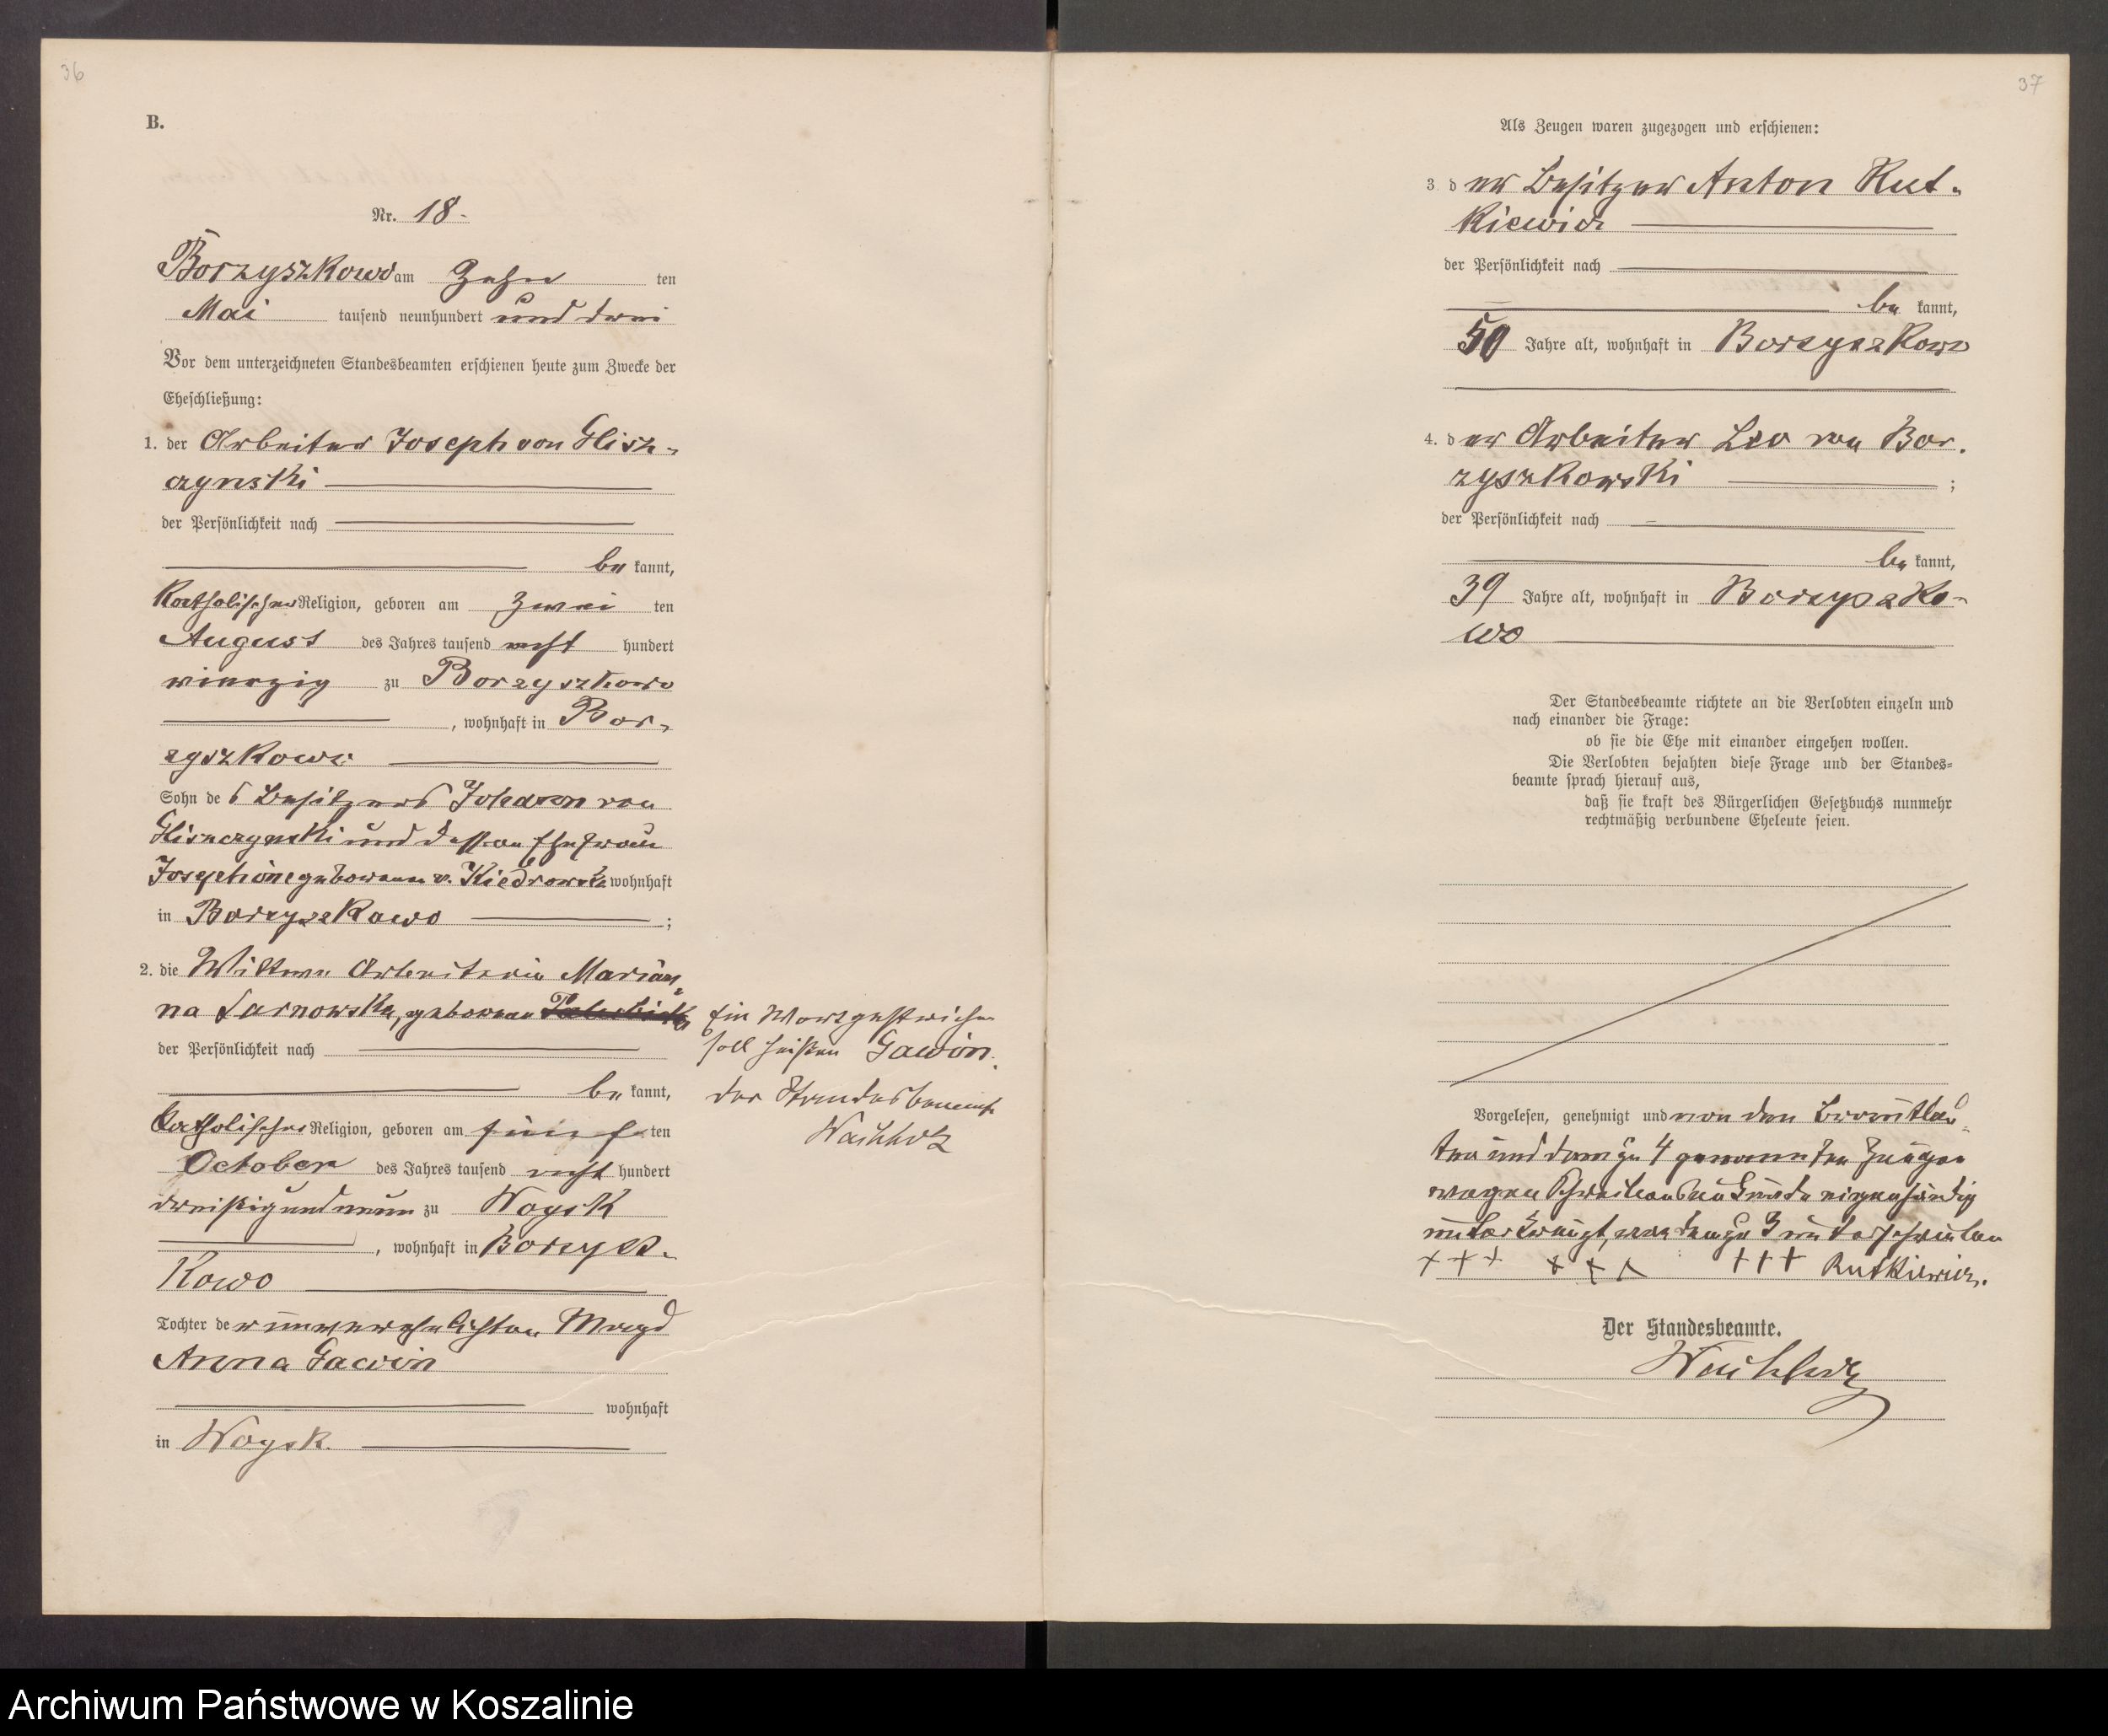 36
B.
Nr. 18.
Borzyszkowo am Zehn ten
Mai tausend neunhundert und drei
Vor dem unterzeichneten Standesbeamten erschienen heute zum Zwecke der
Eheschließung:
1. der Arbeiter Joseph von Glisz-
czynski
der Persönlichkeit nach
be kannt,
Katholischer Religion, geboren am Zwei ten
August des Jahres tausend acht hundert
vierzig zu Borzyszkowo
, wohnhaft in Bor-
zyszkowo
Sohn de s Besitzers Johann von
Gliszczynski und dessen Ehefrau
Josephine geborenen v. Kiedrowska wohnhaft
in Borzyszkowo ;
2. die Wittwe Arbeiterin Marian-
na Sarnowska, geborene
der Persönlichkeit nach
be kannt,
Katholischer Religion, geboren am fünf ten
October des Jahres tausend acht hundert
dreißig und neun zu Woysk
, wohnhaft in Borzysz-
kowo
Tochter de r unverehelichten Magd
Anna Gawin
wohnhaft
in Woysk
Ein Wort gestrichen
soll heißen Gawin.
der Standesbeamte
Wachholz
37
Als Zeugen waren zugezogen und erschienen:
3. d er Besitzer Anton Rut-
kiewicz
der Persönlichkeit nach
be kannt,
50 Jahre alt, wohnhaft in Borzyszkowo
4. d er Arbeiter Leo von Bor-
zyszkowski ;
der Persönlichkeit nach
be kannt,
39 Jahre alt, wohnhaft in Borzyszko-
wo
Der Standesbeamte richtete an die Verlobten einzeln und
nach einander die Frage:
ob sie die Ehe mit einander eingehen wollen.
Die Verlobten bejahten diese Frage und der Standes-
beamte sprach hierauf aus,
daß sie kraft des Bürgerlichen Gesetzbuchs nunmehr
rechtmäßig verbundene Eheleute seien.
Vorgelesen, genehmigt und von den Brautleu-
ten und dem zu 4 genannten Zeugen
wegen Schreibensunkunde eigenhändig
unterkreuzt, von dem zu 3 unterschrieben
+++ +++ +++ Rutkiewicz.
Der Standesbeamte.
Wachholz
Archiwum Państwowe w Koszalinie